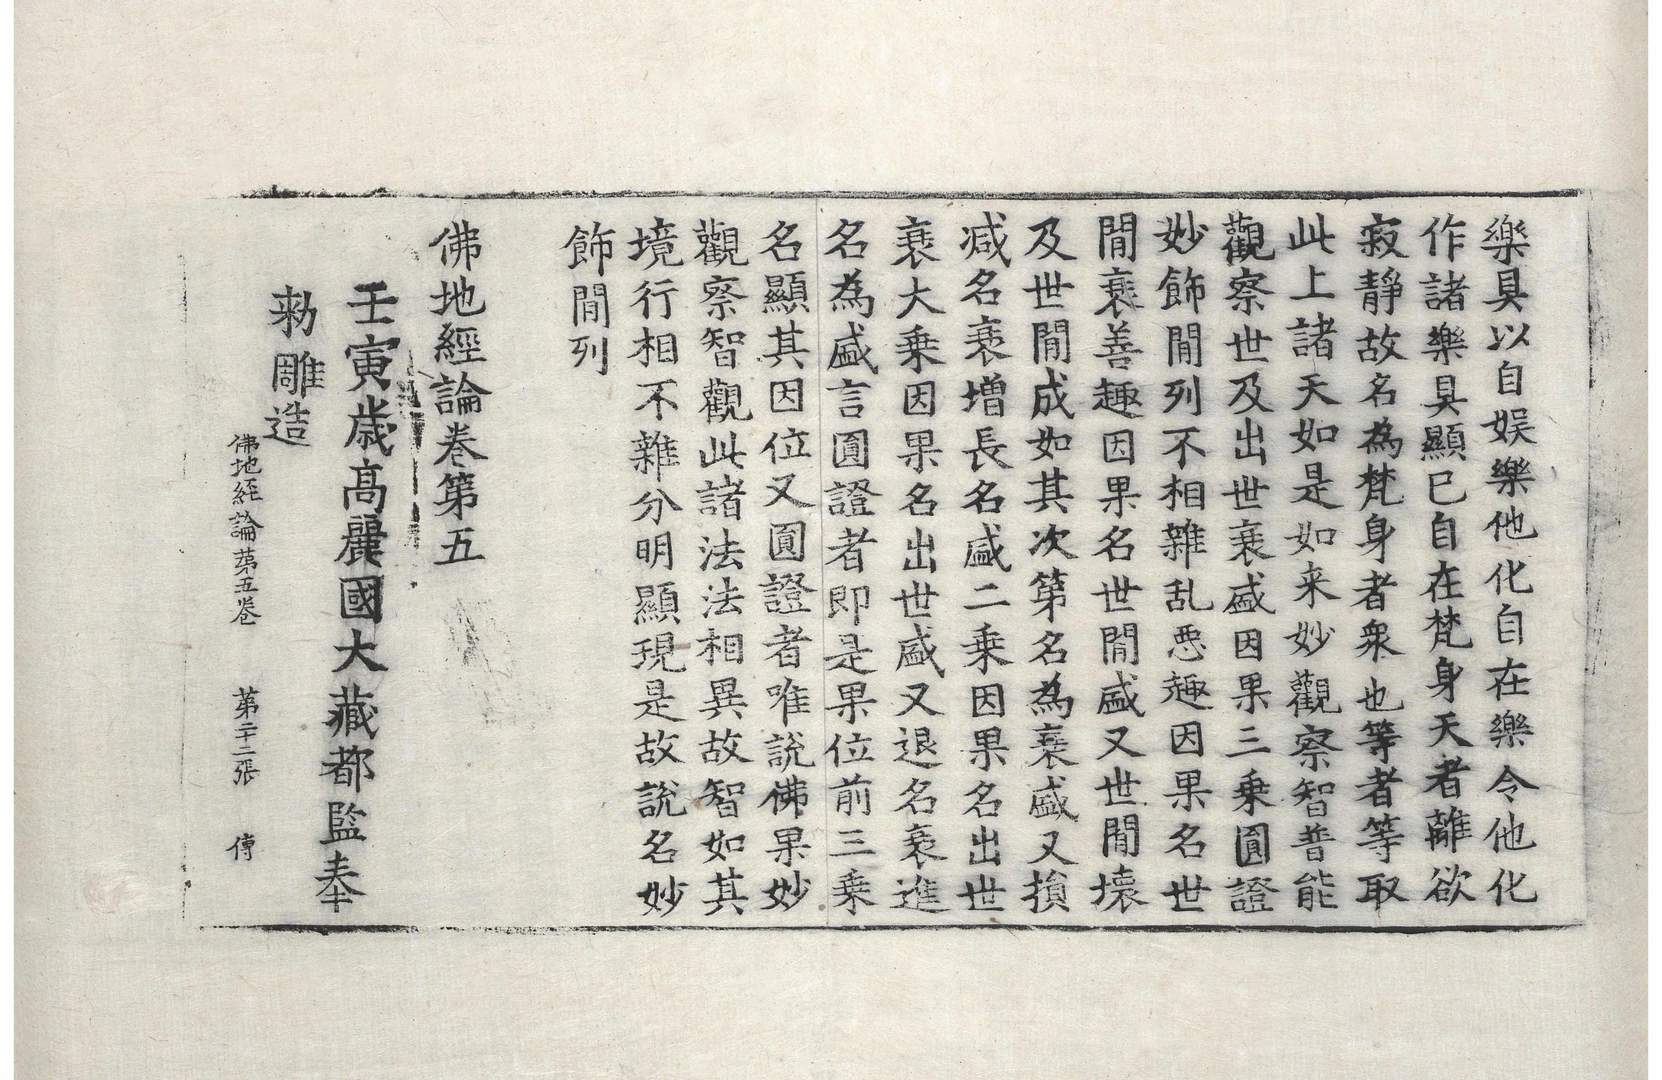 樂具以自娯樂他化自在樂令他化
作諸樂具顯已自在梵身天者離欲
寂靜故名為梵身者衆也等者等取
此上諸天如是如来妙觀察智普能
觀察世及出世衰盛因果三乗圓證
妙飾閒列不相雜乱惡趣因果名世
閒衰善趣因果名世閒盛又世閒壞
及世閒成如其次第名為衰盛又損
减名衰增長名盛二乗因果名出世
衰大乗因果名出世盛又退名衰進
名為盛言圓證者即是果位前三乗
名顯其因位又圓證者唯說佛果妙
觀察智觀此諸法法相異故智如其
境行相不雜分明顯現是故說名妙
飾閒列
佛地經論卷第五
壬寅歲高麗國大藏都監奉
勑雕造
佛地経論第五卷 第二十二張 傳